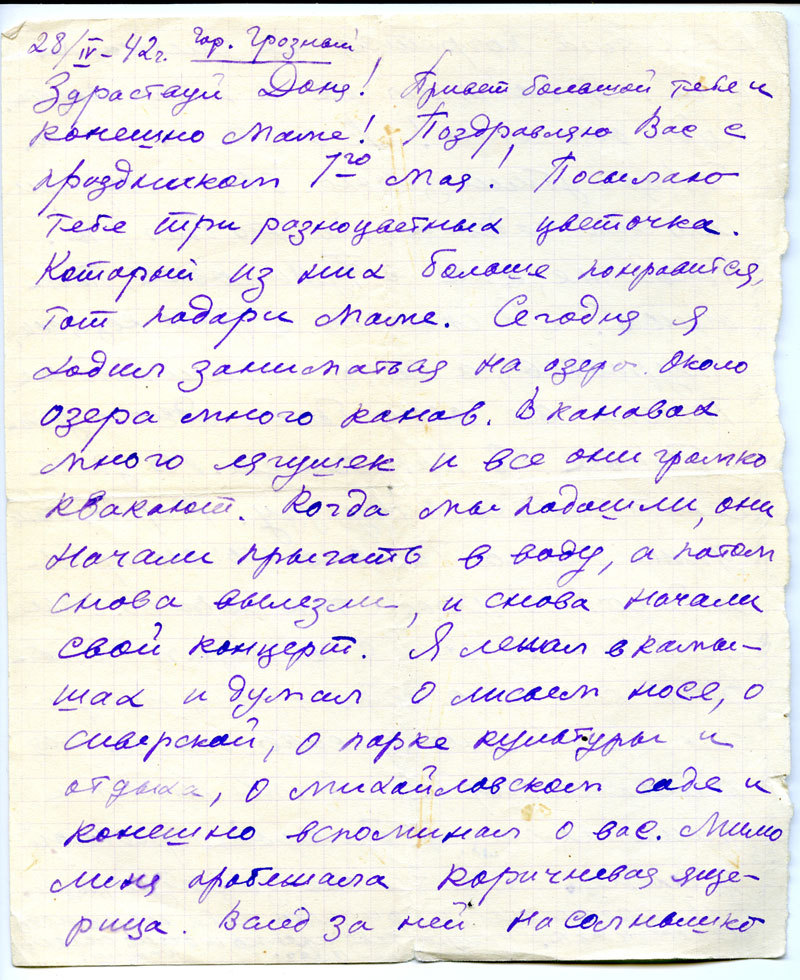 28/IV-42г. гор. Грозный
Здраствуй Доня! Привет большой тебе и
конешно маме! Поздравляю Вас с
праздником 1го мая! Посылаю
тебе три разноцветных цветочка.
Который из них больше понравится,
тот падари маме. Сегодня я
ходил заниматься на озеро. Около
озера много канав. В кановах
много лягушек и все они громко
квакают. Когда мы подошли, они
начали прыгать в воду, а потом
снова вылезли, и снова начали
свой концерт. Я лежал в камы-
шах и думал о лисьем носе, о
сиверской, о парке культуры и
отдыха, о михайловском саде и
конешно вспоминал о вас. Мимо
меня пробежала коричневая яще-
рица. Вслед за ней на солнышко